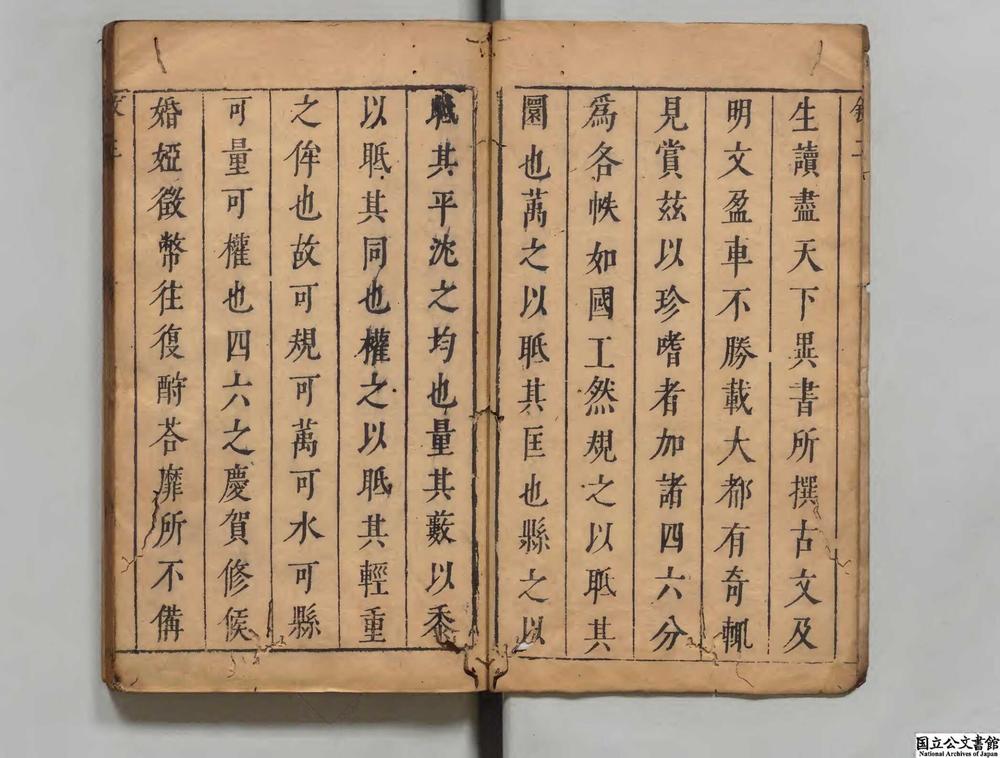 生讀盡天下異書所撰古文及
明文盈車不勝載大都有奇輒
見賞茲以珍嗜者加諸四六分
爲各帙如國工然規之以眡其
圜也萬之以眡其匡也縣之以
眡其平沇之均也量其藪以黍
以眡其同也權之以眡其輕重
之侔也故可規可萬可水可縣
可量可權也四六之慶賀修候
婚婭徵幣往復酧荅靡所不備
国立公文書館
National Archives of Japan